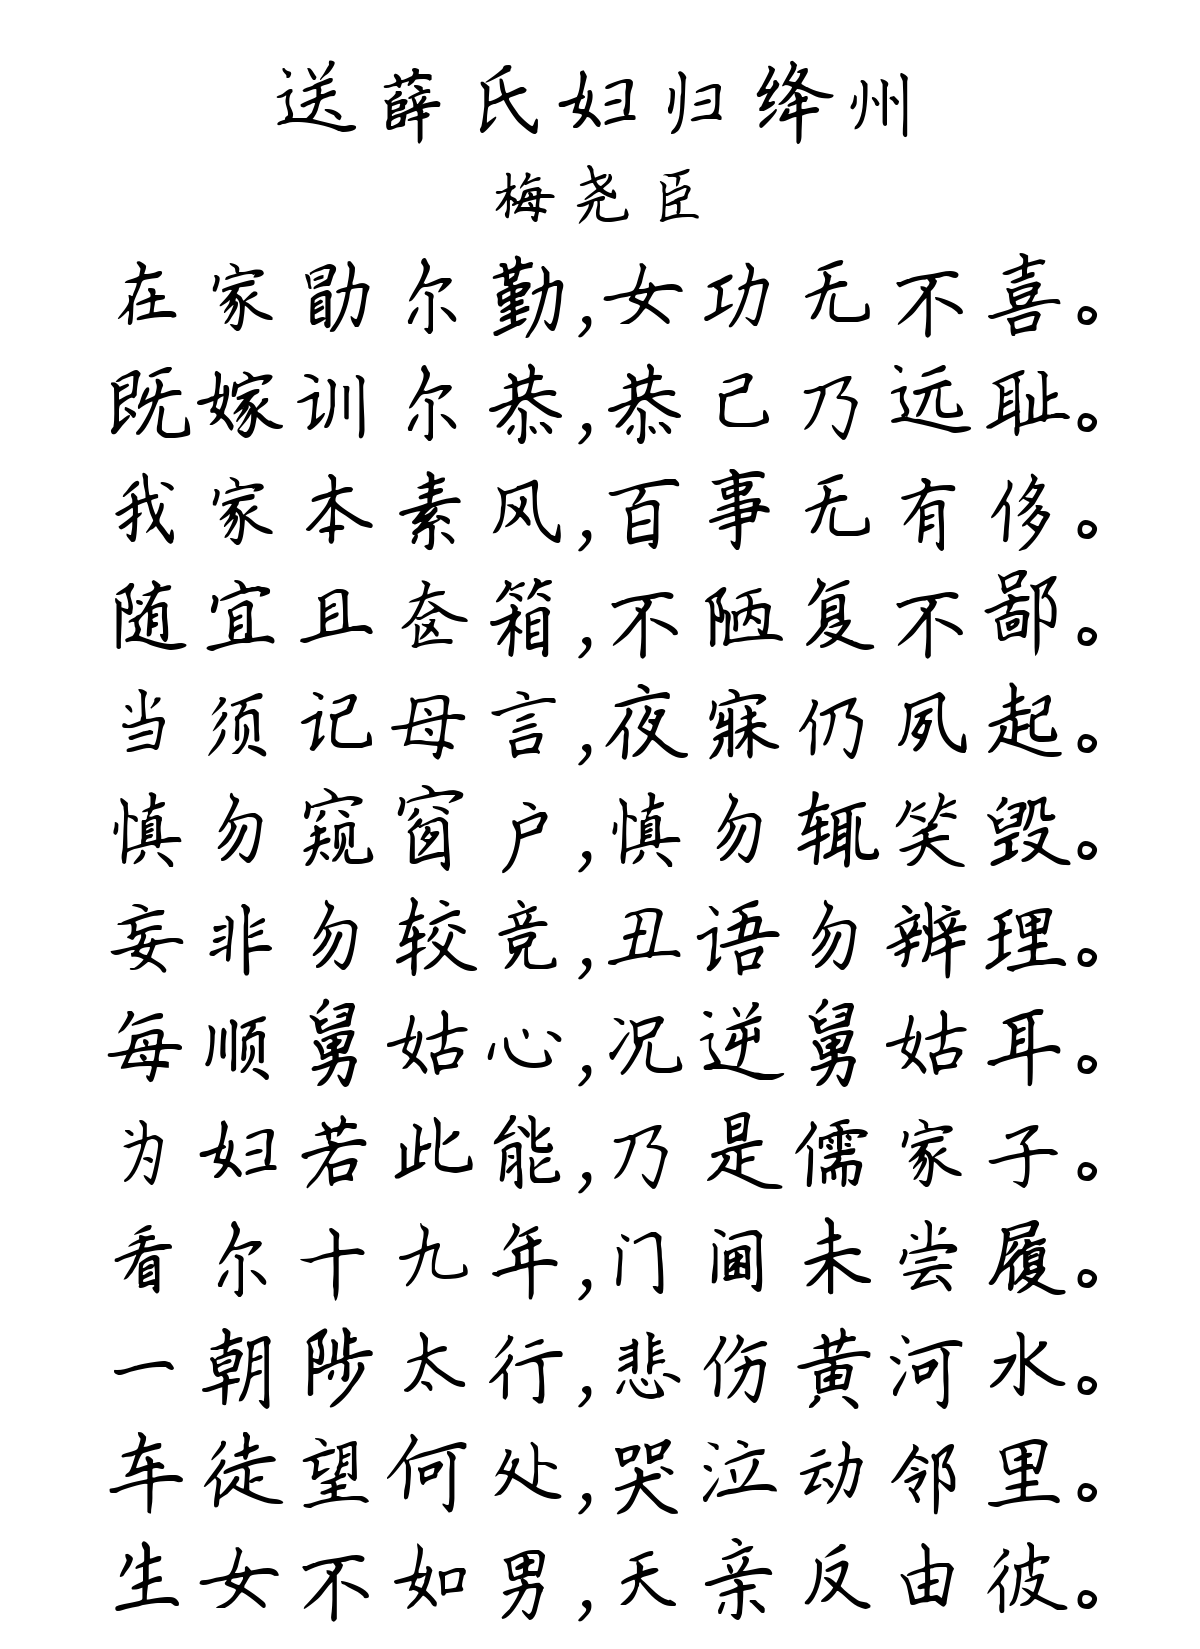 送薛氏妇归绛州
梅尧臣
在家勖尔勤,女功无不喜。
既嫁训尔恭,恭己乃远耻。
我家本素风,百事无有侈。
随宜且奁箱,不陋复不鄙。
当须记母言,夜寐仍夙起。
慎勿窥窗户,慎勿辄笑毁。
妄非勿较竞,丑语勿辨理。
每顺舅姑心,况逆舅姑耳。
为妇若此能,乃是儒家子。
看尔十九年,门阃未尝履。
一朝陟太行,悲伤黄河水。
车徒望何处,哭泣动邻里。
生女不如男,天亲反由彼。